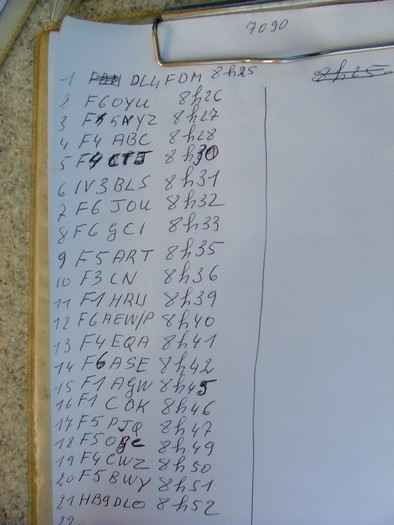 7090
1 DL4FDM 8h25
2 F6OYU 8h26
3 F5NYZ 8h27
4 F4ABC 8h28
5 F4CTJ 8h30
6 IV3BLS 8h31
7 F6JOU 8h32
8 F6GCI 8h33
9 F5ART 8h35
10 F3CN 8h36
11 F1HRU 8h39
12 F6AEW/P 8h40
13 F4EQA 8h41
14 F6ASE 8h42
15 F1AGW 8h45
16 F1COK 8h46
17 F5PJQ 8h47
18 F5OGC 8h49
19 F4CWZ 8h50
20 F5BWY 8h51
21 HB9DLO 8h52
22